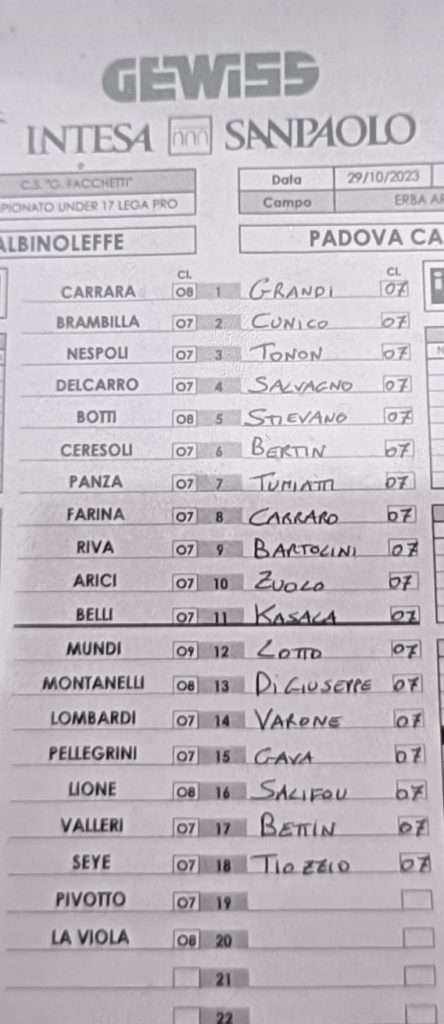 GEWISS
INTESA SANPAOLO
C.S. "G. FACCHETTI" Data 29/10/2023
PIONATO UNDER 17 LEGA PRO Campo ERBA AR
ALBINOLEFFE PADOVA CA
CL CL
CARRARA 08 1 GRANDI 07
BRAMBILLA 07 2 CUNICO 07
NESPOLI 07 3 TONON 07
DELCARRO 07 4 SALVAGNO 07
BOTTI 08 5 STIEVANO 07
CERESOLI 07 6 BERTIN 07
PANZA 07 7 TUMIATTI 07
FARINA 07 8 CARRARO 07
RIVA 07 9 BARTOLINI 07
ARICI 07 10 ZUOLO 07
BELLI 07 11 KASALA 07
MUNDI 09 12 LOTTO 07
MONTANELLI 08 13 DI GIUSEPPE 07
LOMBARDI 07 14 VARONE 07
PELLEGRINI 07 15 GAVA 07
LIONE 08 16 SALIFOU 07
VALLERI 07 17 BETTIN 07
SEYE 07 18 TIOZZO 07
PIVOTTO 07 19
LA VIOLA 08 20
21
22